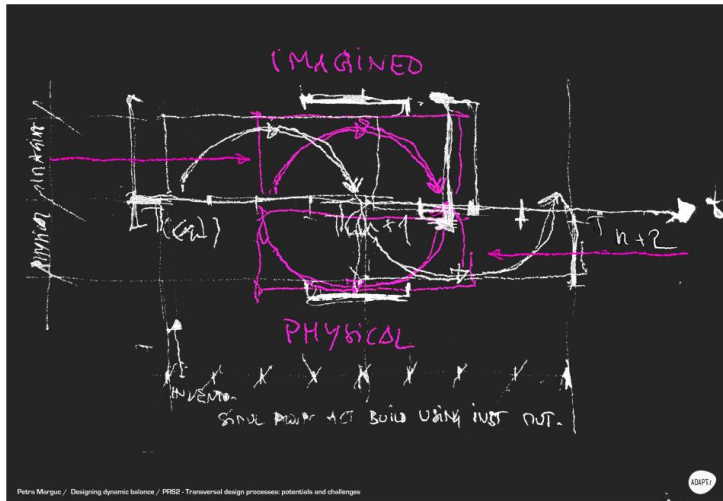 IMAGINED
PHYSICAL
T(n)
T(n+1
T n+2
t
PHYSICAL
INVENT.
ACT BUILD USING OUT.
Petra Marguc / Designing dynamic balance / PRS2 - Transversal design processes: potentials and challenges
ADAPT.r